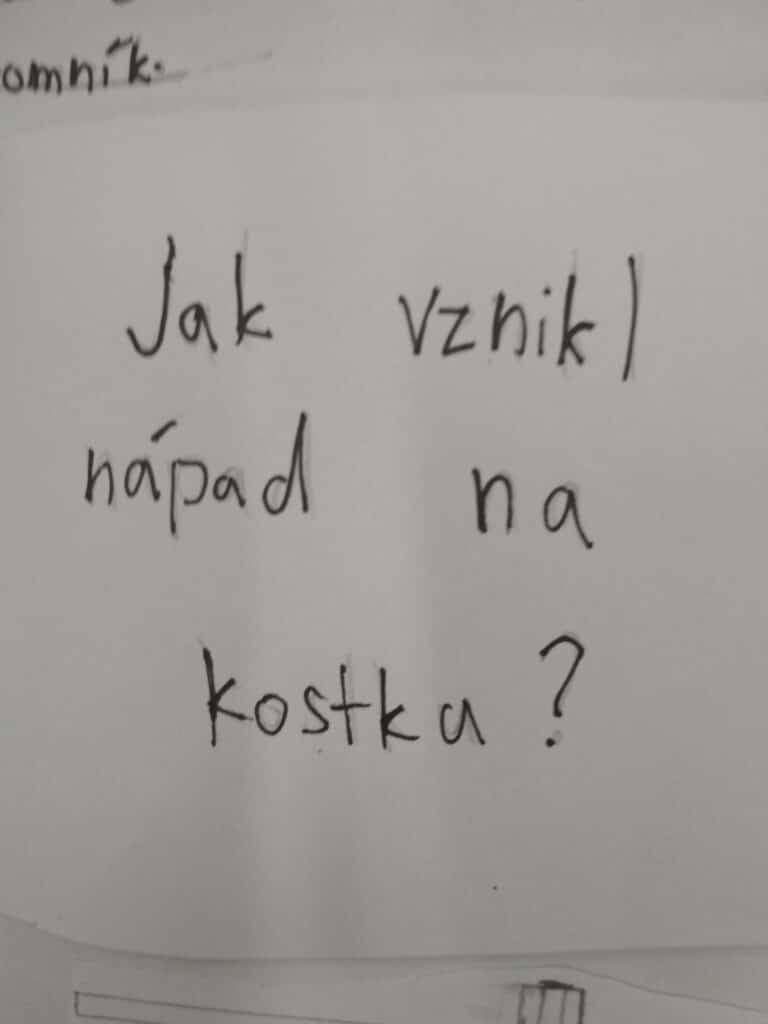 omník.
Jak vznikl
nápad na
kostka?